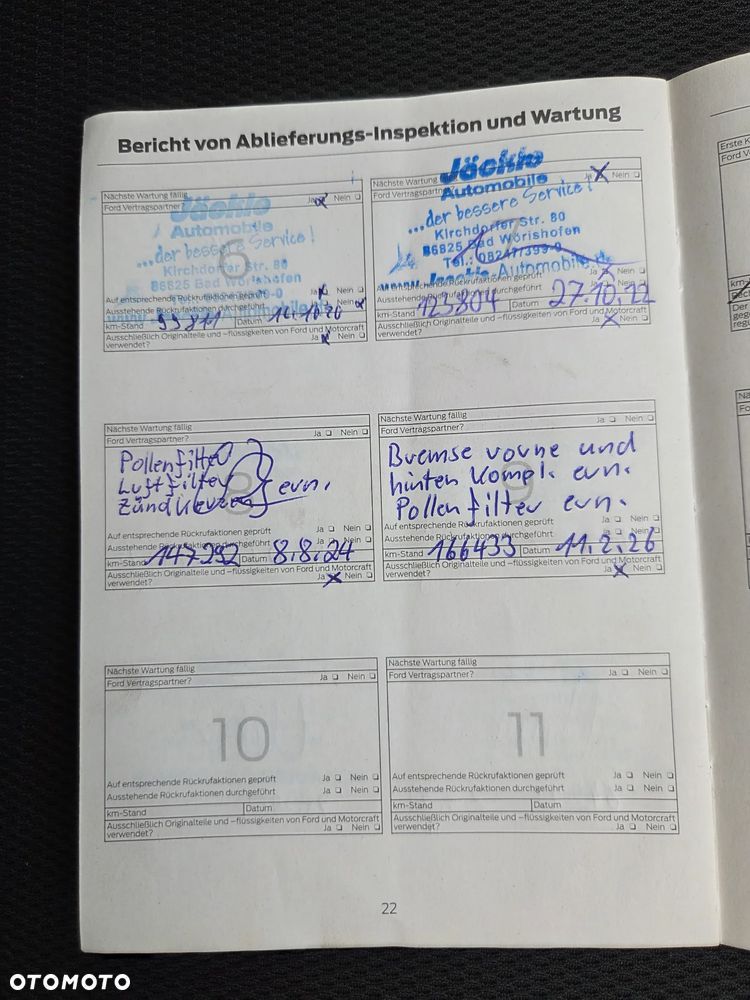 Bericht von Ablieferungs-Inspektion und Wartung
Nächste Wartung fällig
Ford Vertragspartner
Ja Nein
Jäckle
Automobile
...der bessere Service!
6
Kirchdorfer Str. 80
86825 Bad Wörishofen
Auf entsprechende Rückrufaktionen geprüft Ja Nein
Ausstehende Rückrufaktionen durchgeführt Ja Nein
km-Stand 99811 Datum 14.10.20
Ausschließlich Originalteile und –flüssigkeiten von Ford und Motorcraft
verwendet? Ja x Nein
Nächste Wartung
Ford Vertragspartn
Ja x Nein
Jäckle
Automobile
...der bessere Service!
Kirchdorfer Str. 80
86825 Bad Wörishofen
Tel.: 08247/399-0
www.Jaeckle-Automobile.de
entsprechende Rückrufaktionen geprüft Ja x Nein
Ausstehende Rückrufaktionen durchgeführt Ja Nein
km-Stand 123804 Datum 27.10.22
Ausschließlich Originalteile und –flüssigkeiten von Ford und Motorcraft
verwendet? Ja x Nein
Nächste Wartung fällig
Ford Vertragspartner? Ja Nein
8
Pollenfilter
Luftfilter
Zündkerzen
ern.
Auf entsprechende Rückrufaktionen geprüft Ja Nein
Ausstehende Rückrufaktionen durchgeführt Ja Nein
km-Stand 147292 Datum 8.8.24
Ausschließlich Originalteile und –flüssigkeiten von Ford und Motorcraft
verwendet? Ja x Nein
Nächste Wartung fällig
Ford Vertragspartner? Ja Nein
9
Bremse vorne und
hinten kompl. ern.
Pollenfilter ern.
Auf entsprechende Rückrufaktionen geprüft Ja Nein
Ausstehende Rückrufaktionen durchgeführt Ja Nein
km-Stand 166433 Datum 11.2.26
Ausschließlich Originalteile und –flüssigkeiten von Ford und Motorcraft
verwendet? Ja x Nein
Nächste Wartung fällig
Ford Vertragspartner? Ja Nein
10
Auf entsprechende Rückrufaktionen geprüft Ja Nein
Ausstehende Rückrufaktionen durchgeführt Ja Nein
km-Stand Datum
Ausschließlich Originalteile und –flüssigkeiten von Ford und Motorcraft
verwendet? Ja Nein
Nächste Wartung fällig
Ford Vertragspartner? Ja Nein
11
Auf entsprechende Rückrufaktionen geprüft Ja Nein
Ausstehende Rückrufaktionen durchgeführt Ja Nein
km-Stand Datum
Ausschließlich Originalteile und –flüssigkeiten von Ford und Motorcraft
verwendet? Ja Nein
22
Erste K
Ford V
km-
Der
geg
regu
OTOMOTO